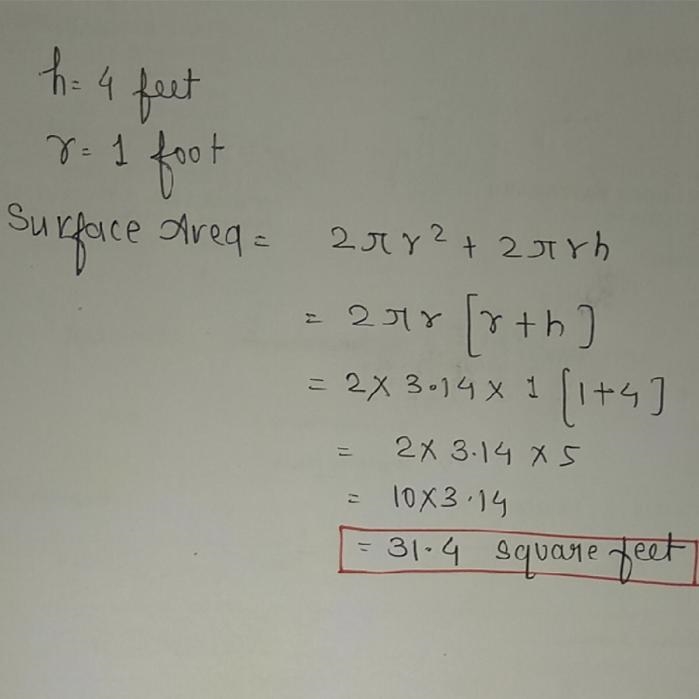 h= 4 feet
r= 1 foot
Surface Area= 2πr² + 2πrh
= 2πr [r+h]
= 2×3.14×1 [1+4]
= 2×3.14×5
= 10×3.14
=31.4 square feet